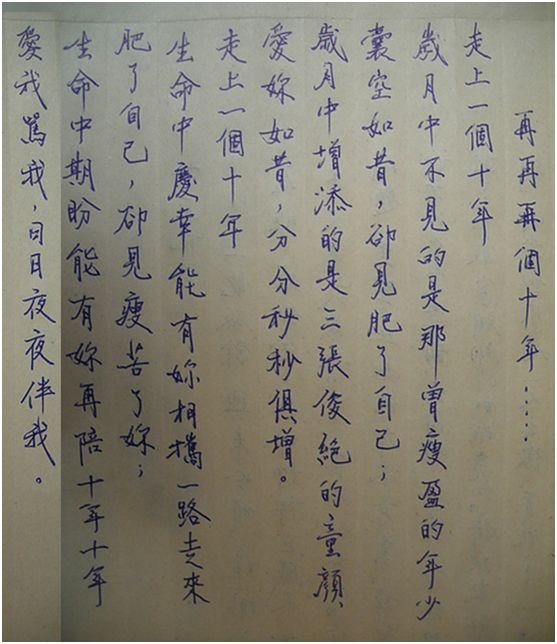 再再再個十年.....
走上一個十年
歲月中不見的是那曾瘦盈的年少
囊空如昔，卻見肥了自己；
歲月中增添的是三張俊絕的童顏
愛妳如昔，分分秒秒俱增。
走上一個十年
生命中慶幸能有妳相攜一路走來
肥了自己，卻見瘦苦了妳；
生命中期盼能有妳再陪十年十年
愛我罵我，日日夜夜伴我。